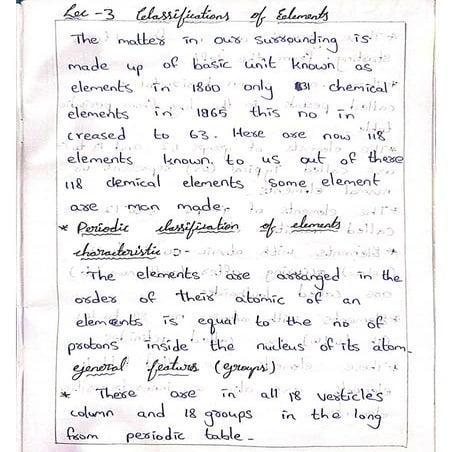 Lec -3 Classifications of Eelements
The matter in our surrounding is
made up of basic unit known as
elements in 1800 only 31 chemical
elements in 1865 this no in
creased to 63. Here are now 118
elements known to us out of there
118 chemical elements some element
are man made.
* Periodic classification of elements
characteristic :-
The elements are arranged in the
order of their atomic of an
elements is equal to the no of
protons inside the nucleus of its atom.
general feature (groups)
* There are in all 18 verticles
column and 18 groups in the long
from periodic table -